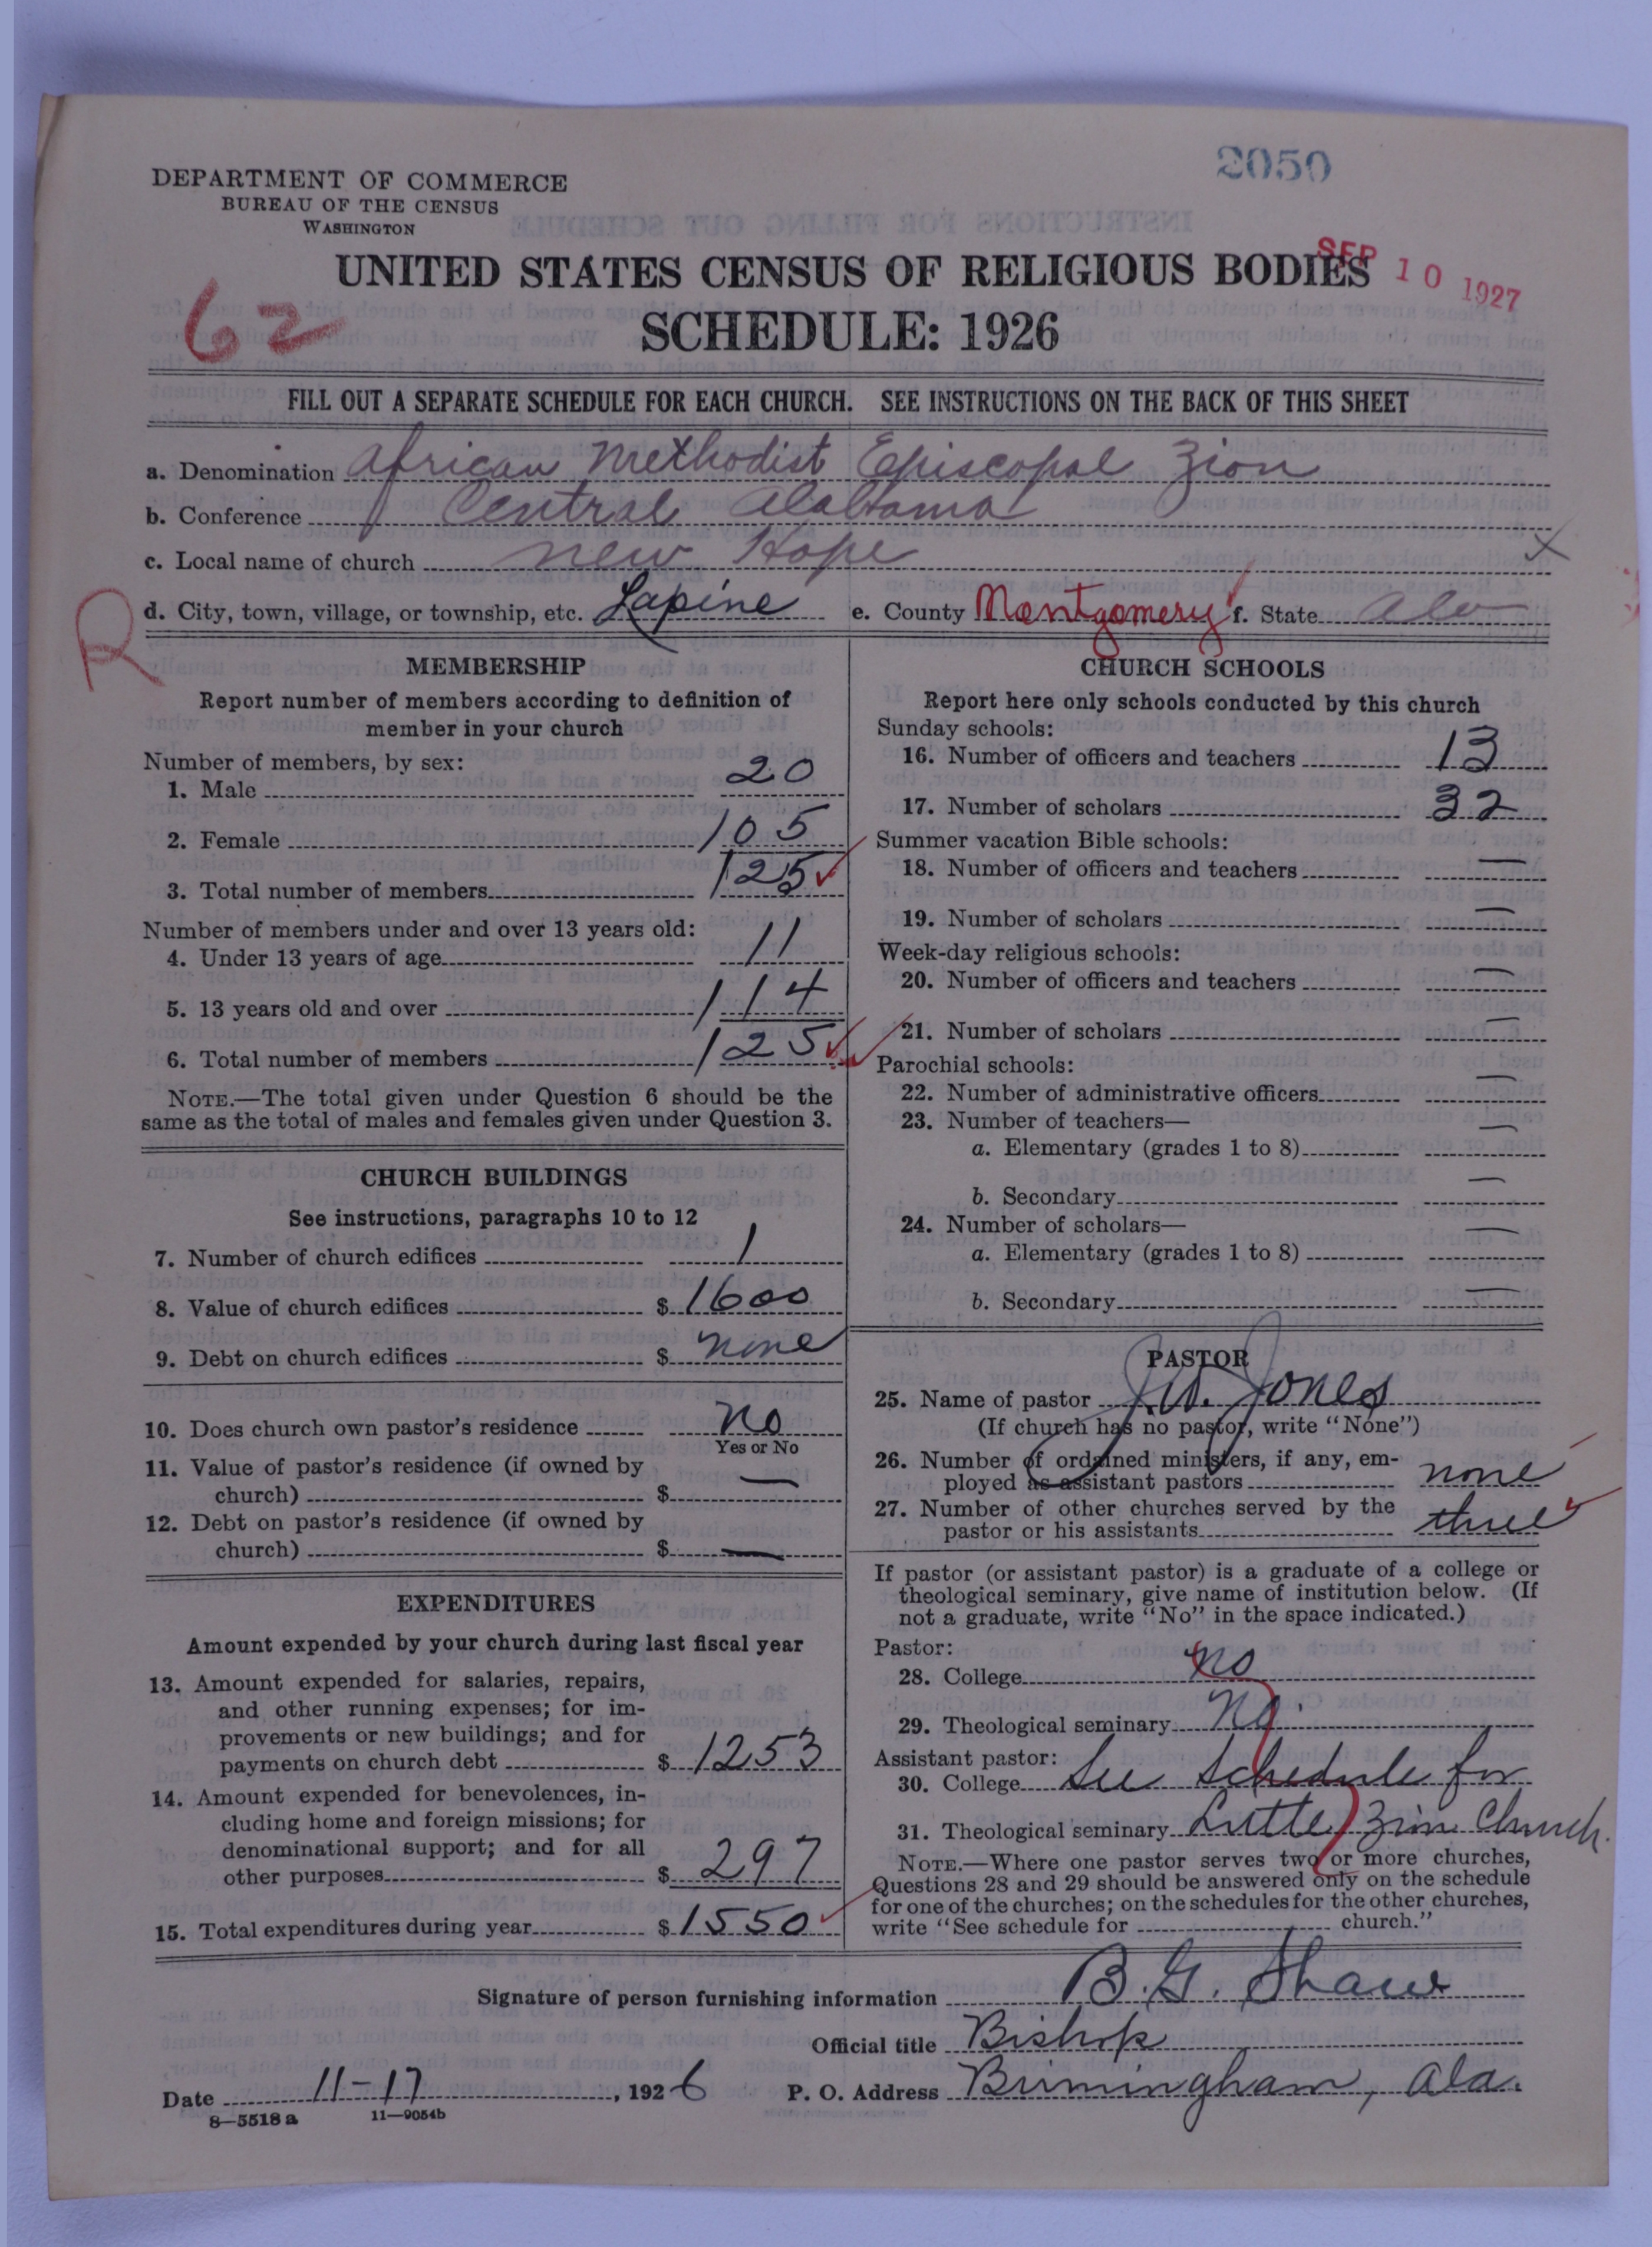 2050
DEPARTMENT OF COMMERCE
BUREAU OF THE CENSUS
WASHINGTON
SEP 10 1927
UNITED STATES CENSUS OF RELIGIOUS BODIES
62
SCHEDULE: 1926
FILL OUT A SEPARATE SCHEDULE FOR EACH CHURCH. SEE INSTRUCTIONS ON THE BACK OF THIS SHEET
a. Denomination African Methodist Episcopal Zion
b. Conference Central Alabama
c. Local name of church New Hope X
R
d. City, town, village, or township, etc. Lapine e. County Montgomery f. State Ala
MEMBERSHIP
Report number of members according to definition of
member in your church
Number of members, by sex:
1. Male 20
2. Female 105
3. Total number of members 125
Number of members under and over 13 years old:
4. Under 13 years of age 11
5. 13 years old and over 114
6. Total number of members 125
NOTE.—The total given under Question 6 should be the
same as the total of males and females given under Question 3.
CHURCH BUILDINGS
See instructions, paragraphs 10 to 12
7. Number of church edifices 1
8. Value of church edifices $ 1600
9. Debt on church edifices $ none
10. Does church own pastor's residence No
Yes or No
11. Value of pastor's residence (if owned by
church) $ —
12. Debt on pastor's residence (if owned by
church) $ —
EXPENDITURES
Amount expended by your church during last fiscal year
13. Amount expended for salaries, repairs,
and other running expenses; for im-
provements or new buildings; and for
payments on church debt $ 1253
14. Amount expended for benevolences, in-
cluding home and foreign missions; for
denominational support; and for all
other purposes $ 297
15. Total expenditures during year $ 1550
CHURCH SCHOOLS
Report here only schools conducted by this church
Sunday schools:
16. Number of officers and teachers 13
17. Number of scholars 32
Summer vacation Bible schools:
18. Number of officers and teachers —
19. Number of scholars —
Week-day religious schools:
20. Number of officers and teachers —
21. Number of scholars —
Parochial schools:
22. Number of administrative officers —
23. Number of teachers—
a. Elementary (grades 1 to 8) —
b. Secondary —
24. Number of scholars—
a. Elementary (grades 1 to 8) —
b. Secondary —
PASTOR
25. Name of pastor J. W. Jones
(If church has no pastor, write "None")
26. Number of ordained ministers, if any, em-
ployed as assistant pastors none
27. Number of other churches served by the
pastor or his assistants three
If pastor (or assistant pastor) is a graduate of a college or
theological seminary, give name of institution below. (If
not a graduate, write "No" in the space indicated.)
Pastor:
28. College no
29. Theological seminary No.
Assistant pastor:
30. College See Schedule for
31. Theological seminary Little Zion Church.
NOTE.—Where one pastor serves two or more churches,
Questions 28 and 29 should be answered only on the schedule
for one of the churches; on the schedules for the other churches,
write "See schedule for church."
Signature of person furnishing information B. G. Shaw
Official title Bishop
Date 11-17, 1926 P. O. Address Birmingham, Ala.
8—5518 a 11—9054b